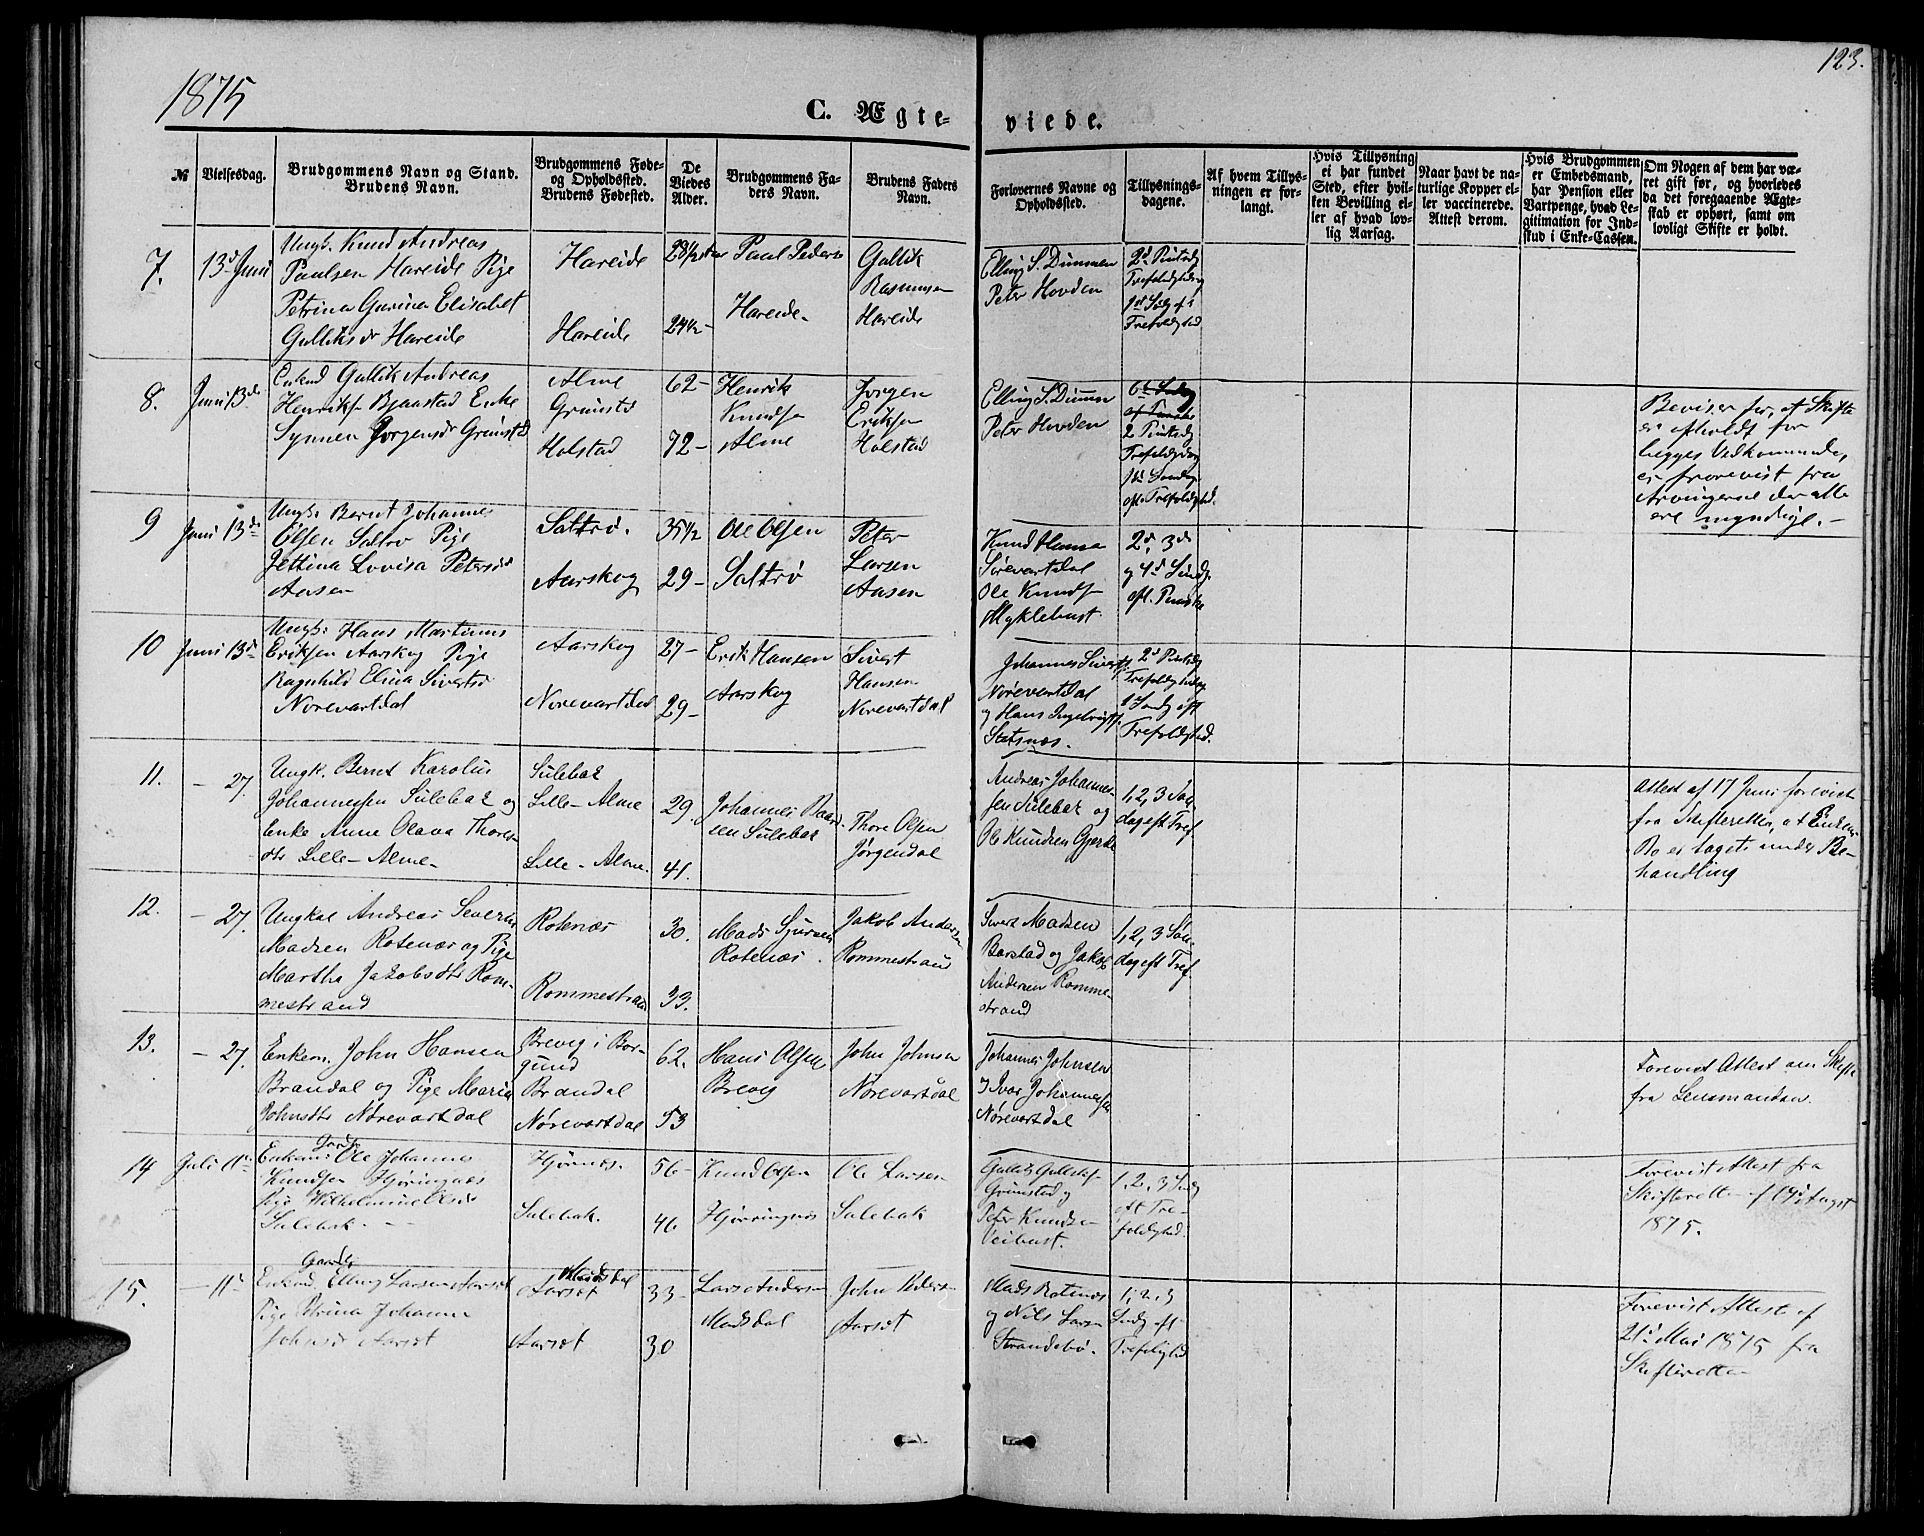 1875
123.
C. Ægte-
viede.
№
Vielsesdag.
Brudgommens Navn og Stand.
Brudens Navn.
Brudgommens Føde-
og Opholdssted.
Brudens Fødested.
De
Viedes
Alder.
Brudgommens Fa-
ders Navn.
Brudens Faders
Navn.
Forlovernes Navne og
Opholdssted.
Tillysnings-
dagene.
Af hvem Tillys-
ningen er for-
langt.
Hvis Tillysning
ei har fundet
Sted, efter hvil-
ken Bevilling el-
ler af hvad lov-
lig Aarsag.
Naar havt de na-
turlige Kopper el-
ler vaccinerede.
Attest derom.
Hvis Brudgommen
er Embedsmand,
har Pension eller
Vartpenge, hvad Le-
gitimation for Ind-
skud i Enke-Cassen.
Om Nogen af dem har væ-
ret gift før, og hvorledes
da det foregaaende Ægte-
skab er ophørt, samt om
lovligt Skifte er holdt.
7.
13d Juni
Ungk. Knud Andreas
Paulsen Hareide Pige
Petrina Gurina Elisabet
Gulliksdr Hareide
Hareide
Hareide
28½
24½-
Paul Peders
Hareide
Gullik
Rasmussen
Hareide
Elling S. Dimmen
Peter Hovden
2d Pintsdg
Trefoldighdsdg
1st Sødg eft
Trefoldghed
8.
Juni 13de
Enkmd Gullik Andreas
Henriks. Bjaastad Enke
Synnev Jørgensdr Grimstd
Alme
Grimstd
Holstad
62-
72-
Henrik
Knuds.
Alme
Jørgen
Eriksen
Holstad
Elling S. Dimm
Peter Hovden
2 Pintsdg
Trefoldghdsdg
1ste Søndag
eft. Trefoldghed.
Beviser for, at Skifte
er afholdt for
begges Vedkommende,
er forevist fra
Arvingerne der alle
ere myndige. -
9
Juni 13de
Ungk. Bernt Johannes
Olsen Saltrø Pige
Jettina Lovisa Petersdr
Aasen
Saltrø.
Aarskog
35½
29-
Ole Olsen
Saltrø
Peter
Larsen
Aasen
Knud Hansen
Sørevartdal
Ole Knuds.
Myklebust.
2d, 3d
og 4d Søndg.
eft. Paaske
10
Juni 13de
Ungk. Hans Martinus
Eriksen Aarskog Pige
Ragnhild Elina Sivertsd
Norevartdal
Aarskog
Norevartdal
27-
29-
Erik Hansen
Aarskog
Sivert
Hansen
Norevartdal
Johannes Siverts.
Nørevartdal
og Hans Ingebrigts.
Statsnes.
2d Pintsdg
Trefoldghdsdg
1 Søndg eft
Trefoldghed.
11.
- 27.
Ungk. Bernt Karolus
Johannessen Sulebak og
Enke Anne Olava Thores-
dtr Lille-Alme-
Sulebak
Lille-Alme
Lille-Alme.
29.
41.
Johannes Baard-
sen Sulebak
Thore Olsen
Jørgendal
Andreas Johannes-
sen Sulebak og
Ole Knudsen Gjerde
1, 2, 3 Søn-
dag eft Tref
Attest af 17 Juni forevist
fra Skifteretten, at Enkens
Bo er taget under Be-
handling
12.
- 27.
Ungkal Andreas Severin
Madsen Rotenæs og Pige
Marthe Jakobsdtr Rom-
mestrand
Rotenæs
Rommestrand
30.
33.
Mads Sjursen
Rotenæs.
Jakob Andersen
Rommestrand
Sivert Madsen
Barstad og Jakob
Andersen Romme-
strand
1, 2, 3 Søn-
dag eft Tref
13.
- 27.
Enkem. John Hansen
Brandal og Pige Maria
Johnsdtr Nørevartdal
Brevig i Bor-
gund
Brandal
Nørevartdal
62.
53
Hans Olsen
Brevig
John Johnsen
Nørevartdal
Johannes Johnsen
Ivar Johannessen
Nørevartdal
Forevist Attest om Skifte
fra Lensmanden.
14
Juli 11te
Enkem: Ole Johannes
Knudsen Hjøringnæs
Pige Wilhelmine Olsdr
Sulebak - -
Hjørnæs.
Sulebak.
56-
46.
Knud Olsen
Hjøringnæs
Ole Larsen
Sulebak
Gullik Gulliks.
Grimstad og
Peter Knudsen
Veibust.
1, 2, 3 Søndg
eft Tre-
foldighed.
Forevist Attest fra
Skifteretten af 19d August
1875.
15.
- 11te
Gaardbr
Enkmd. Elling Larsen Aarsæt
Pige Petrina Johanne
Johnsdr Aarsæt
Aarsæt
Aarsæt
33-
30
Lars Andersen
Mosdal
John Peders
Aarsæt
Mads Rotenæs
og Nils Larsen
Strandebø.
1, 2, 3
Søndg eft
Trefoldighed
Forevist Attest af
21de Mai 1875 fra
Skifteretten